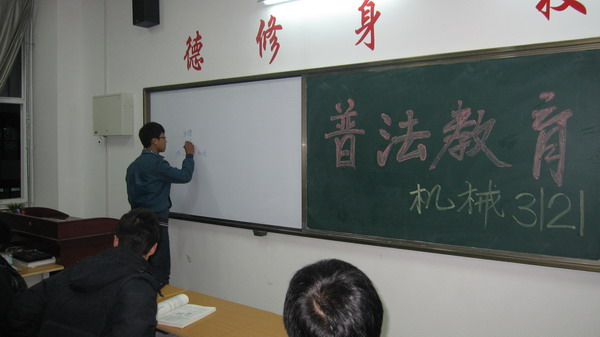 德修身
普法教育
机械3121